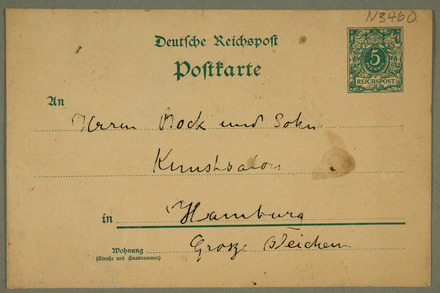 N3460
Deutsche Reichspost
Postkarte
5
REICHSPOST
An
Herrn Bock und Sohn
Kunstsalon
in Hamburg
Wohnung Grosze Bleichen
(Straße und Hausnummer)